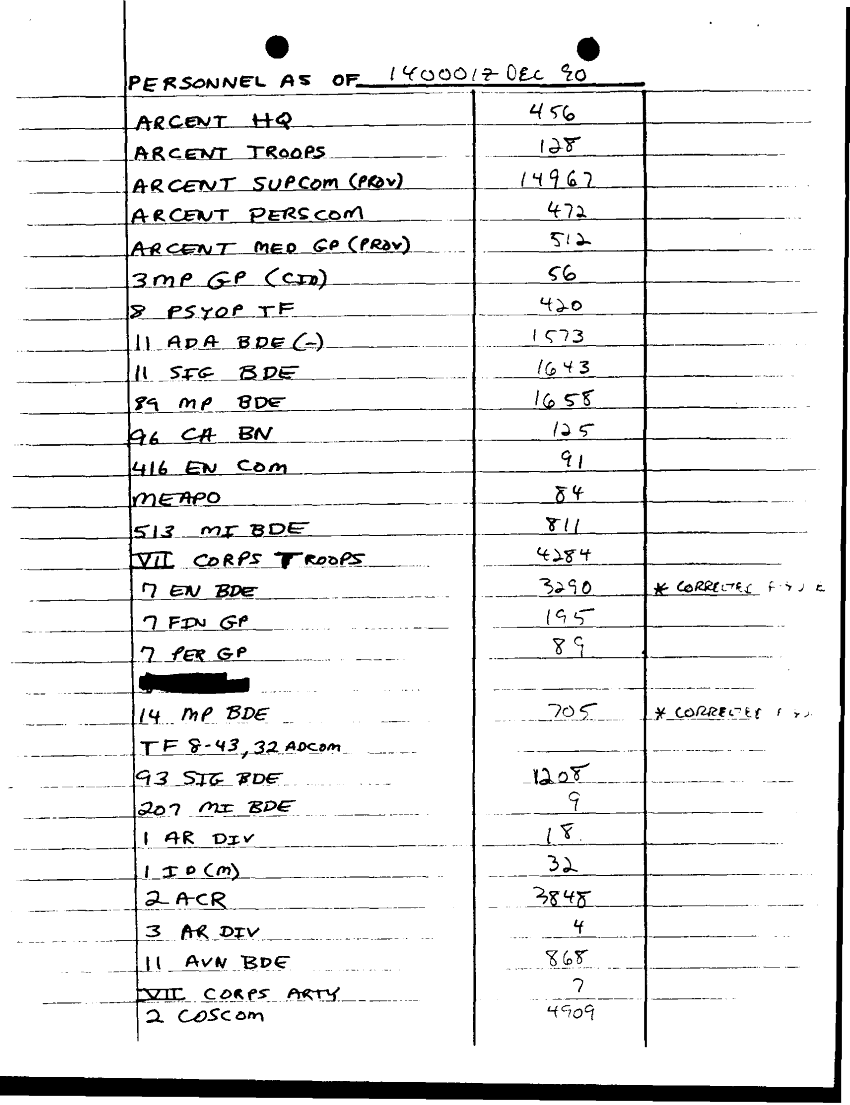 PERSONNEL AS OF 140001Z DEC 90
ARCENT HQ 456
ARCENT TROOPS 128
ARCENT SUPCOM (PROV) 14967
ARCENT PERSCOM 472
ARCENT MED GP (PROV) 512
3 MP GP (CID) 56
8 PSYOP TF 420
11 ADA BDE (-) 1573
11 SIG BDE 1643
89 MP BDE 1658
96 CA BN 125
416 EN COM 91
MEAPO 84
513 MI BDE 811
VII CORPS TROOPS 4284
7 EN BDE 3290 * CORRECTED
7 FIN GP 195
7 PER GP 89
14 MP BDE 705 * CORRECTED
TF 8-43, 32 ADCOM
93 SIG BDE 1208
207 MI BDE 9
1 AR DIV 18
1 ID (M) 32
2 ACR 3848
3 AR DIV 4
11 AVN BDE 868
VII CORPS ARTY 7
2 COSCOM 4909